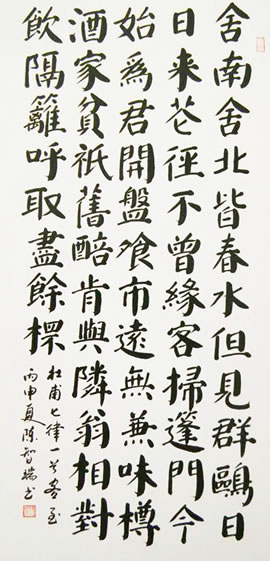 舍南舍北皆春水但見群鷗日
日来花徑不曾緣客掃蓬門今
始爲君開盤飱市遠無兼味樽
酒家貧祇舊醅肯與隣翁相對
飲隔籬呼取盡餘桮
杜甫七律一首客至
丙申夏陈智书